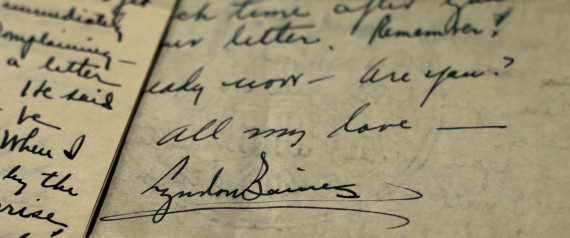 immediately
complaining —
a letter
He said
When I
by the
time after you
letter. Remember?
now — Are you?
All my love —
Lyndon Baines